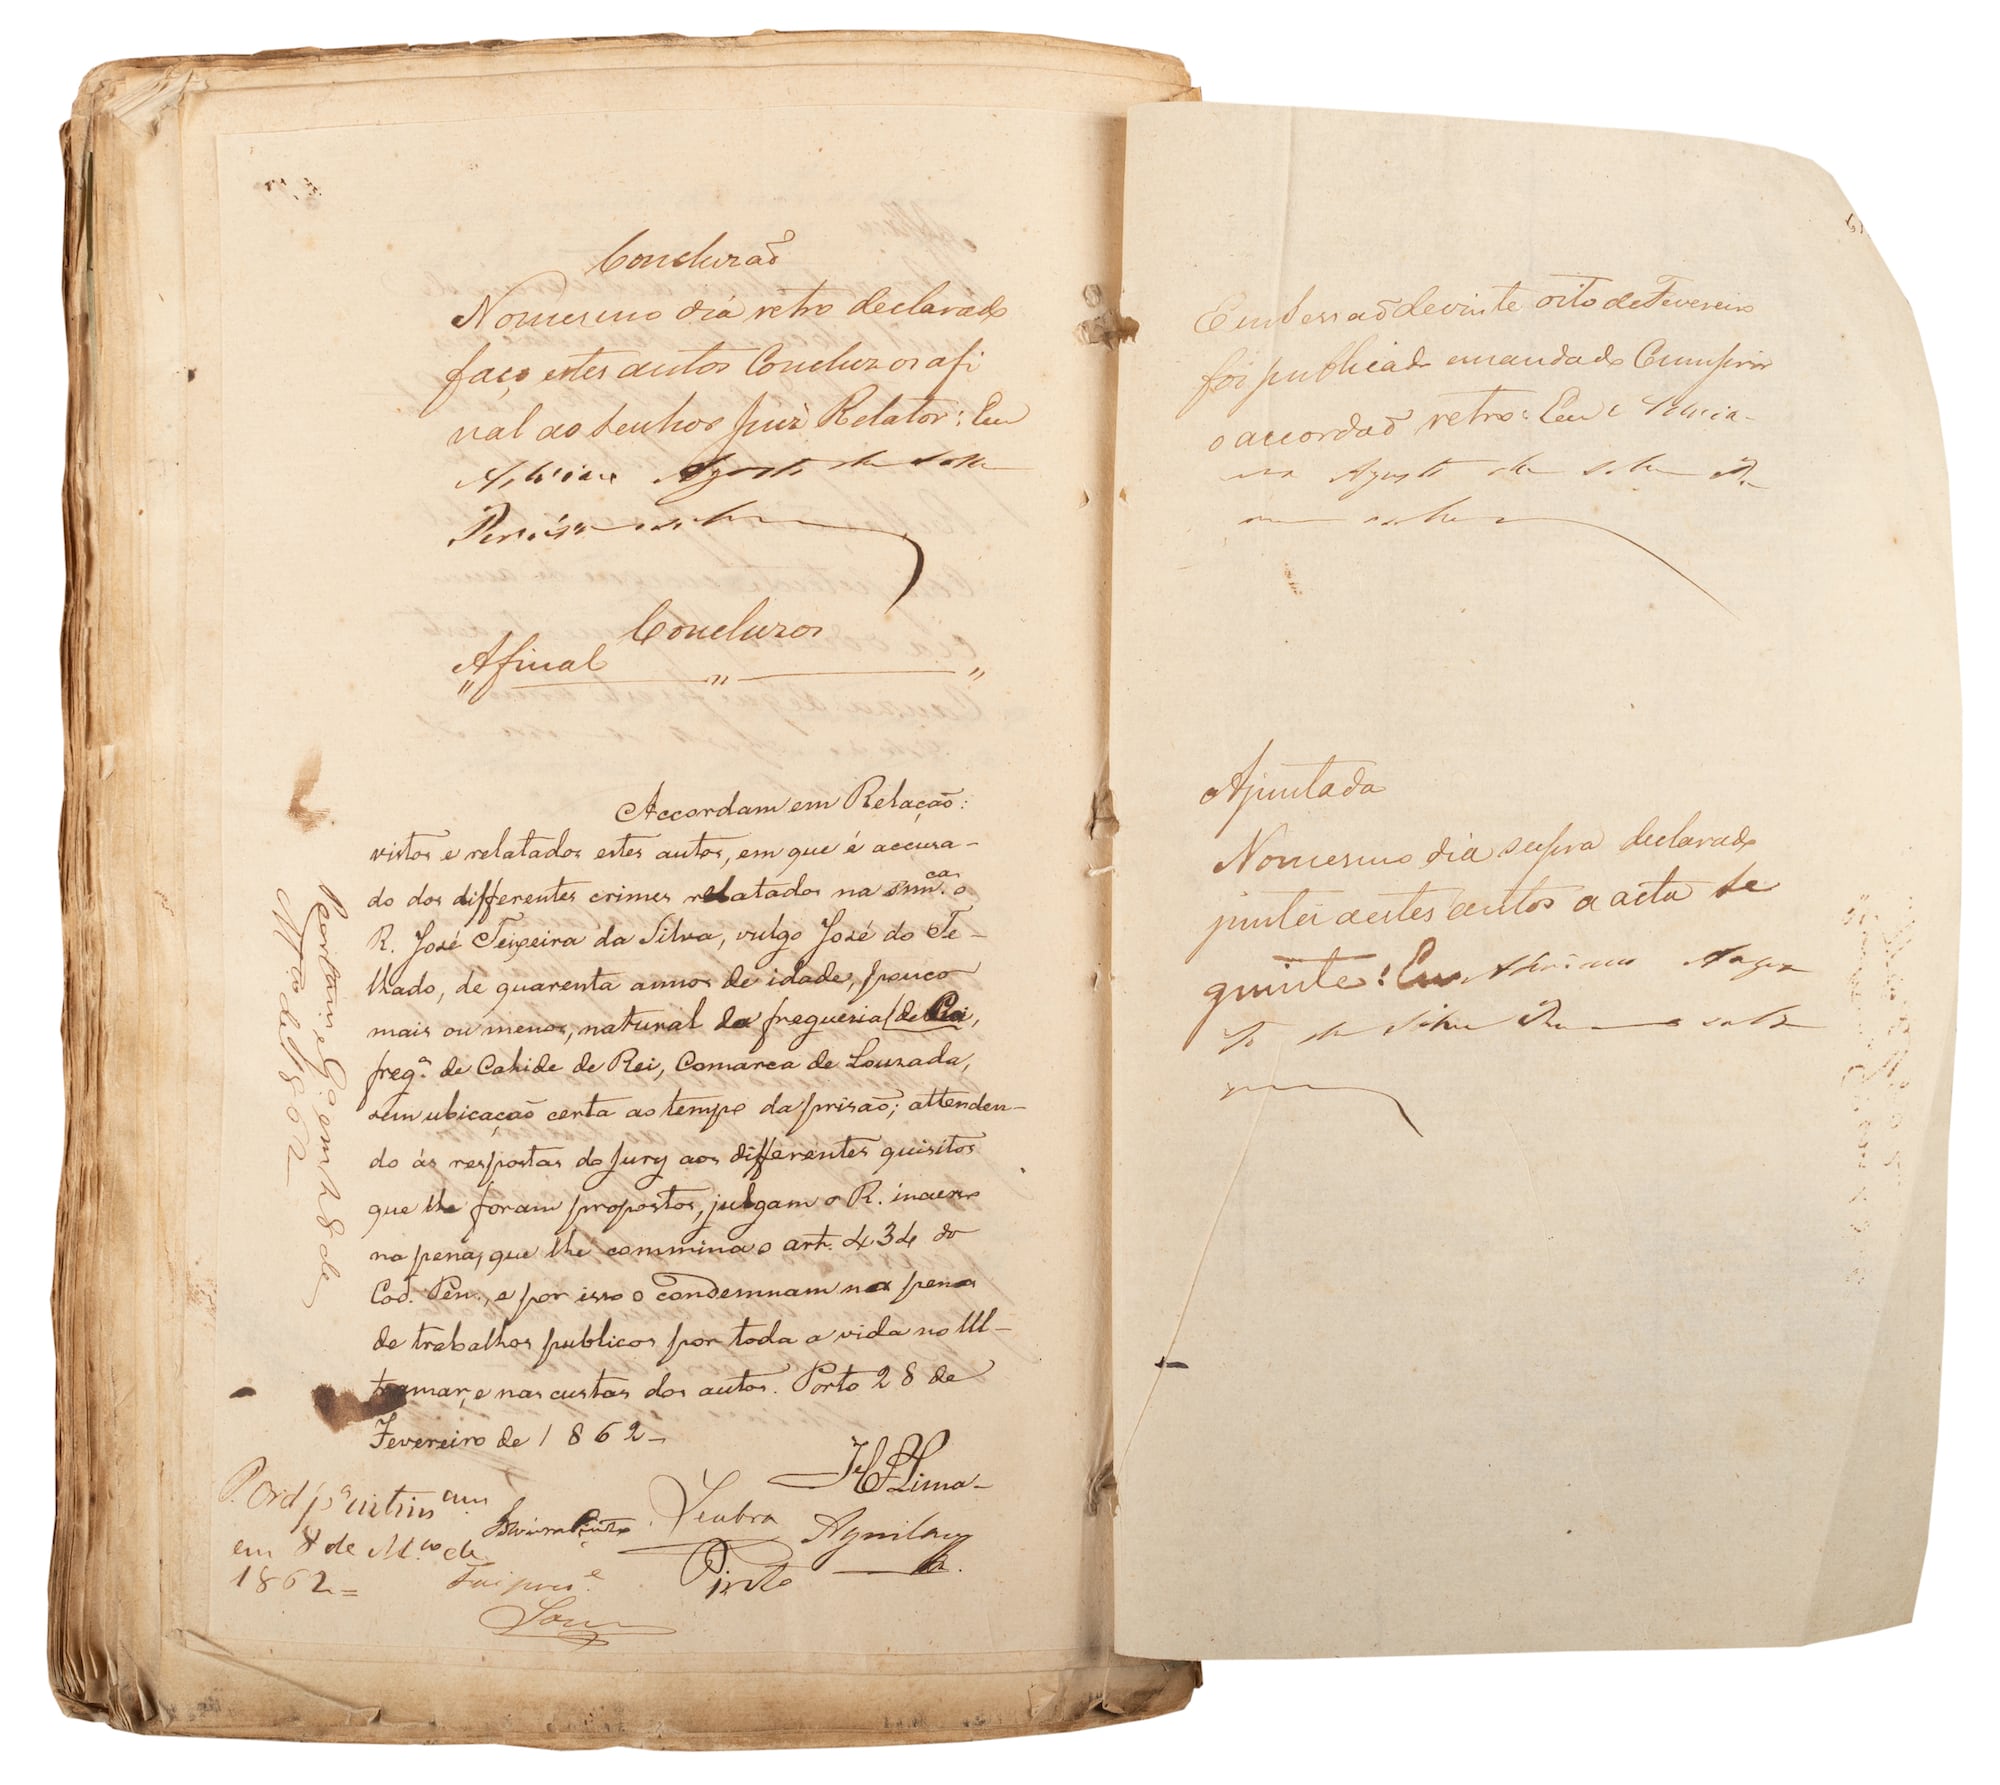 Concluzaõ
No mesmo dia retro declarado
faço estes autos Concluzos afi
nal ao Senhor Juiz Relator: Eu
Concluzos
Afinal
Accordam em Relação:
vistos e relatados estes autos, em que é accusa-
do dos differentes crimes relatados na o
R. José Teixeira da Silva, vulgo José do Te-
lhado, de quarenta annos de idade, pouco
mais ou menos, natural da freguezia
freg.ª de Cahide de Rei, Comarca de Louzada,
sem ubicação certa ao tempo da prisaõ; attenden-
do ás respostas do Jury aos differentes quisitos
que lhe foram propostos, julgam o R. incurso
na pena, que lhe commina o art. 434 do
Cod. Pen., e por isso o condemnam na pena
de trabalhos publicos por toda a vida no Ul-
tramar, e nas custas dos autos. Porto 28 de
Fevereiro de 1862-
Lima-
Seabra
Aguilar
Pinto
P.
em 8 de M.ço de
1862=
Fui prez.e
em 28 de
de 1862
Em Sessaõ de vinte oito de Fevereiro
foi publicado e mandado Cumprir
o accordaõ retro: Eu
Ajuntada
No mesmo dia supra declarado
juntei a estes autos a acta se
guinte: Eu